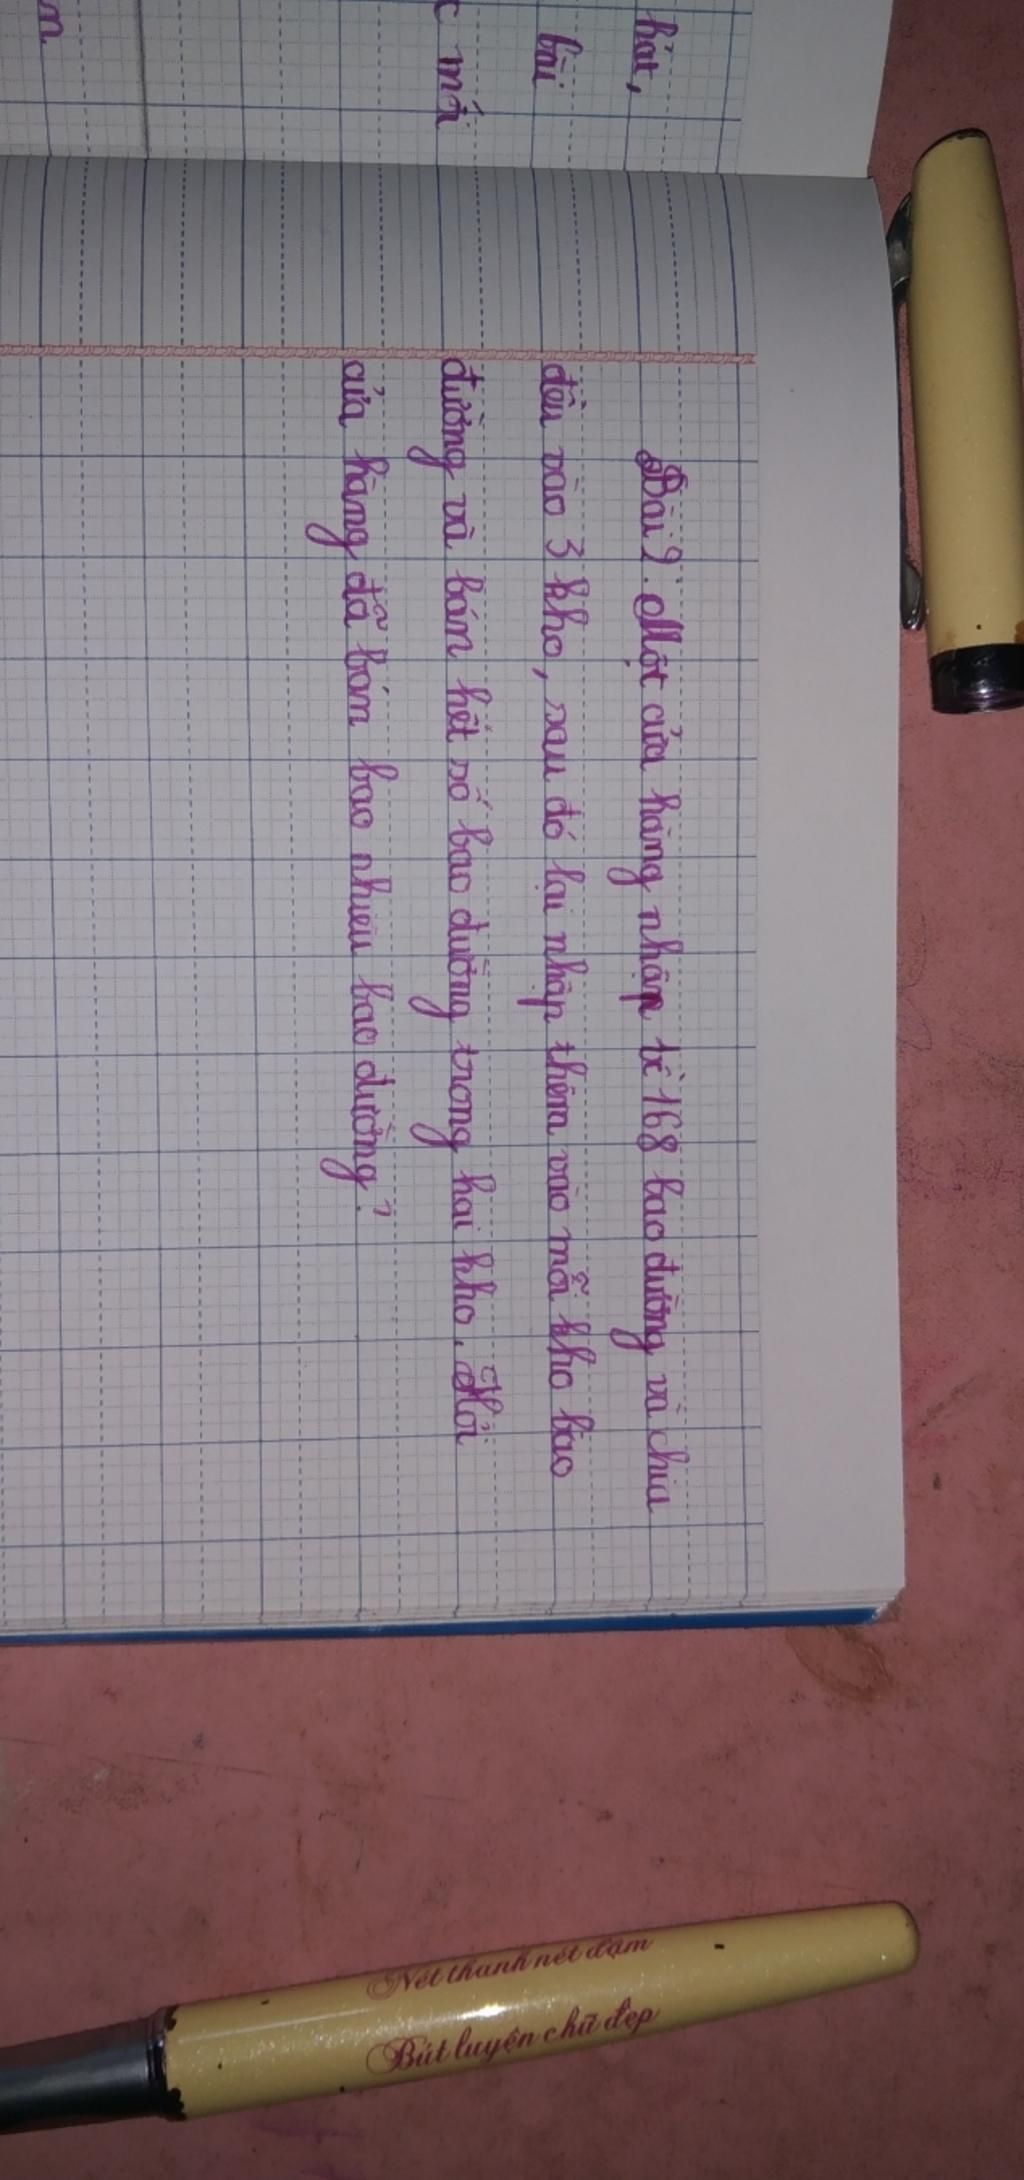 hát,
bài
c mới
m
Bài 9. Một cửa hàng nhập về 168 bao đường và chia
đều vào 3 kho, sau đó lại nhập thêm vào mỗi kho bao
đường và bán hết số bao đường trong hai kho. Hỏi
cửa hàng đã bán bao nhiêu bao đường?
Nét thanh nét đậm
Bút luyện chữ đẹp